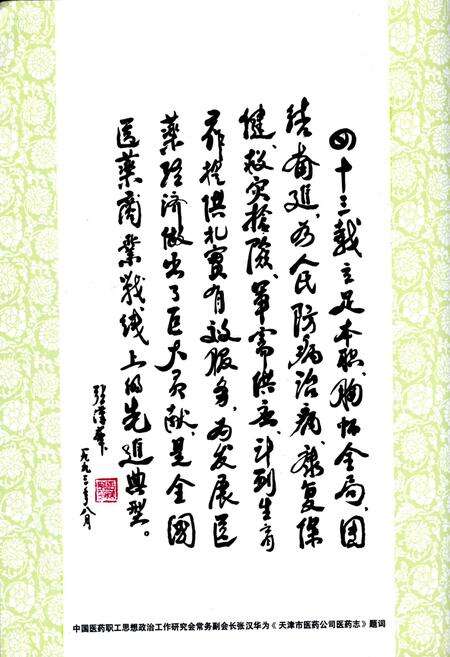 四十三载立足本职,胸怀全局,团
结奋进,为人民防病治病、康复保
健、救灾抢险、军需供应、计划生育
工作提供扎实有效服务,为发展医
药经济做出了巨大贡献,是全国
医药商业战线上的先进典型。
张汉华
一九九三年八月
中国医药职工思想政治工作研究会常务副会长张汉华为《天津市医药公司医药志》题词